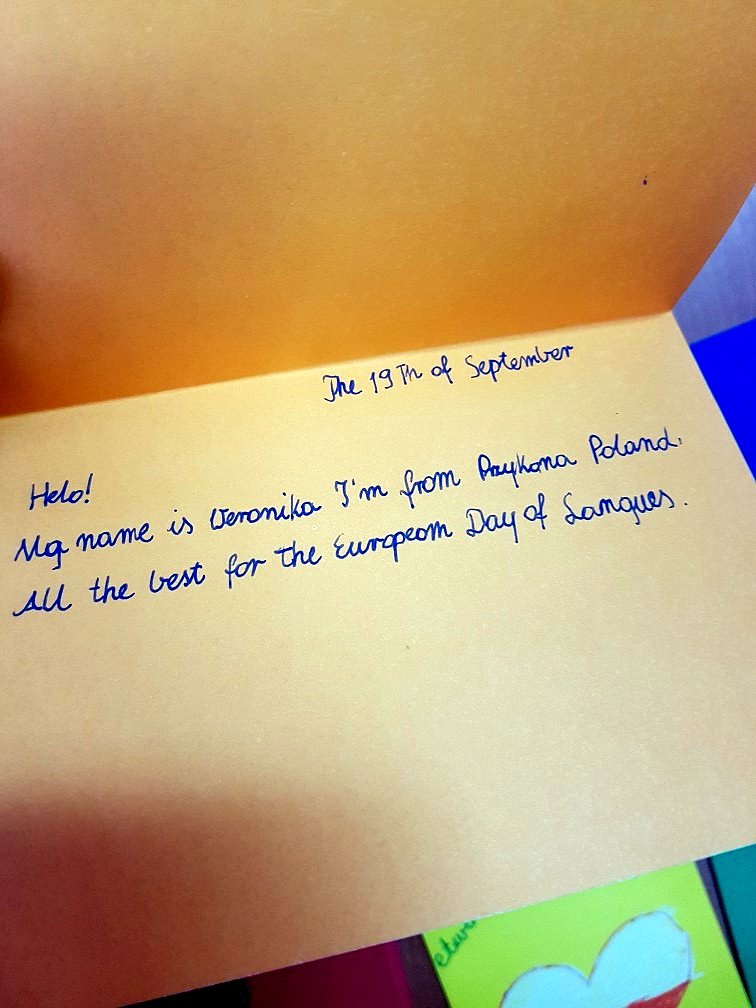 The 19Th of September
Helo!
My name is Weronika I'm from Przykona Poland.
All the best for the European Day of Langues.